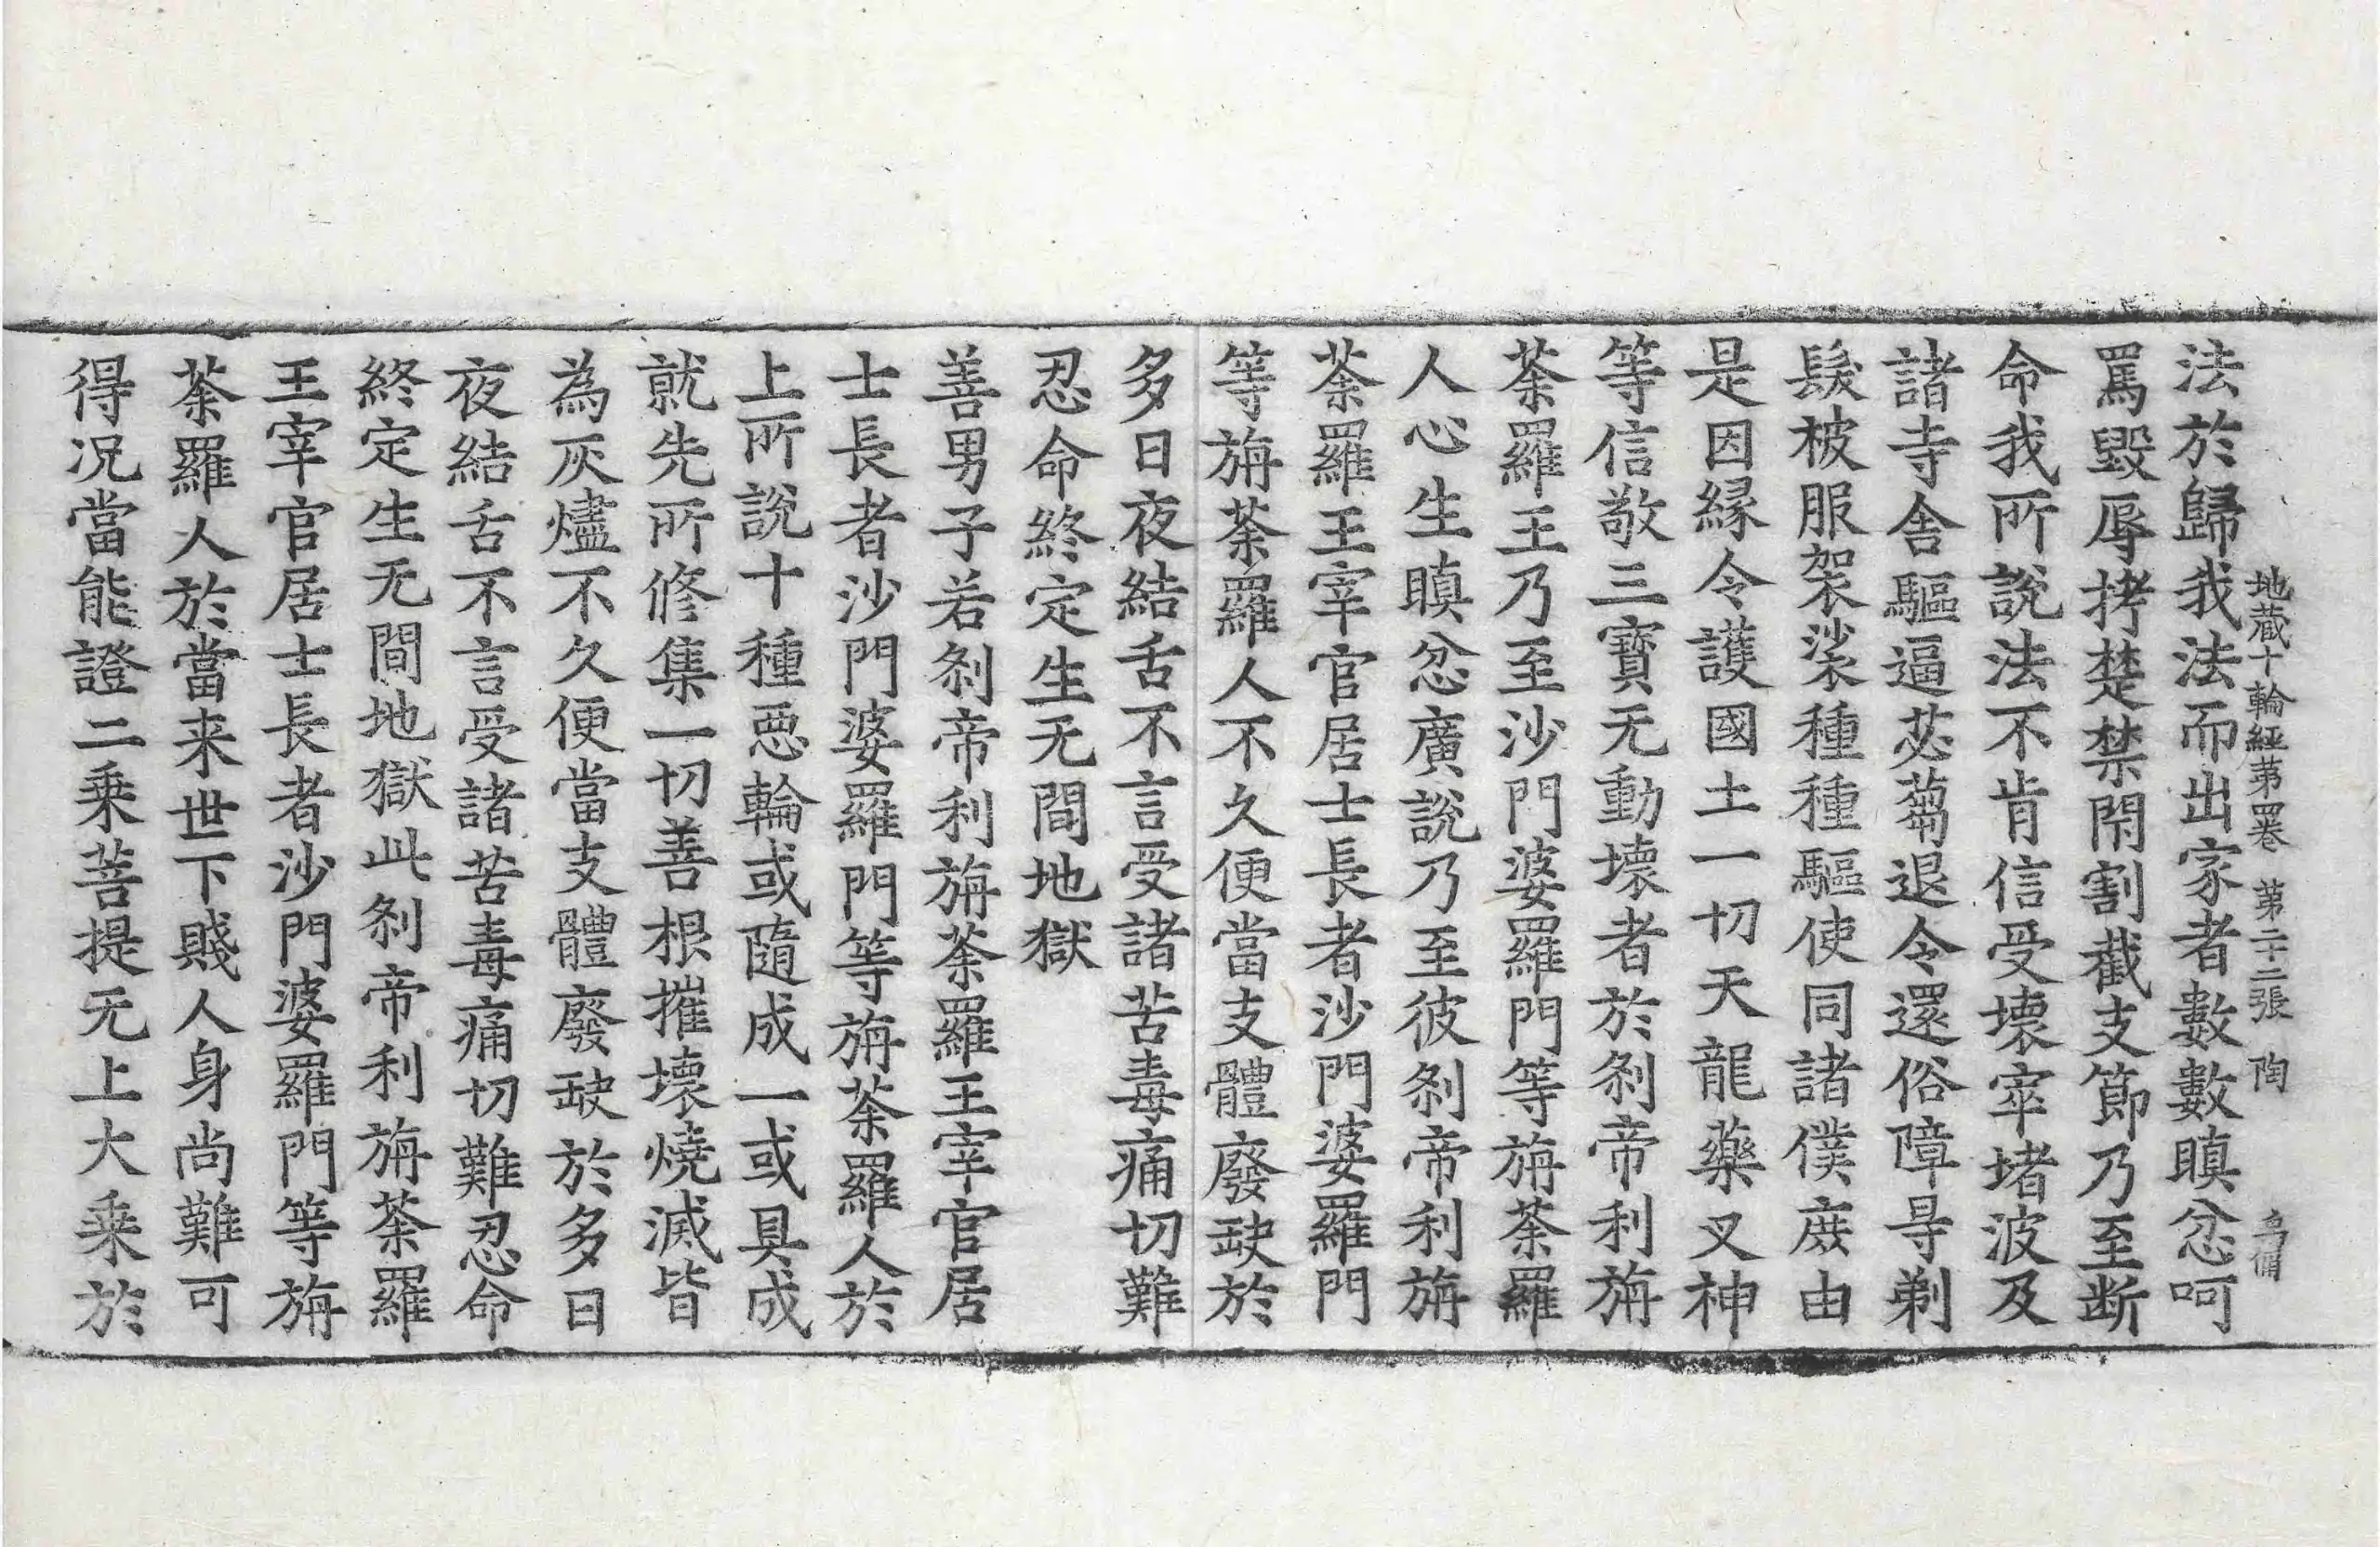 地藏十輪經第四卷 第二十二張 陶
法於歸我法而出家者數數瞋忿呵
罵毀辱拷楚禁閇割截支節乃至断
命我所說法不肯信受壞窣堵波及
諸寺舍驅逼苾蒭退令還俗障㝵剃
髮被服袈裟種種驅使同諸僕庶由
是因緣令護國土一切天龍藥叉神
等信敬三寶无動壞者於剎帝利旃
荼羅王乃至沙門婆羅門等旃荼羅
人心生瞋忿廣說乃至彼剎帝利旃
荼羅王宰官居士長者沙門婆羅門
等旃荼羅人不久便當支體廢缺於
多日夜結舌不言受諸苦毒痛切難
忍命終定生无間地獄
善男子若剎帝利旃荼羅王宰官居
士長者沙門婆羅門等旃荼羅人於
上所說十種惡輪或隨成一或具成
就先所修集一切善根摧壞燒滅皆
為灰燼不久便當支體廢缺於多日
夜結舌不言受諸苦毒痛切難忍命
終定生无間地獄此剎帝利旃荼羅
王宰官居士長者沙門婆羅門等旃
荼羅人於當来世下賤人身尚難可
得况當能證二乘菩提无上大乘於